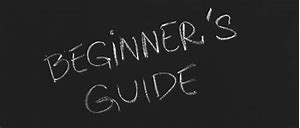 BEGINNER'S
GUIDE